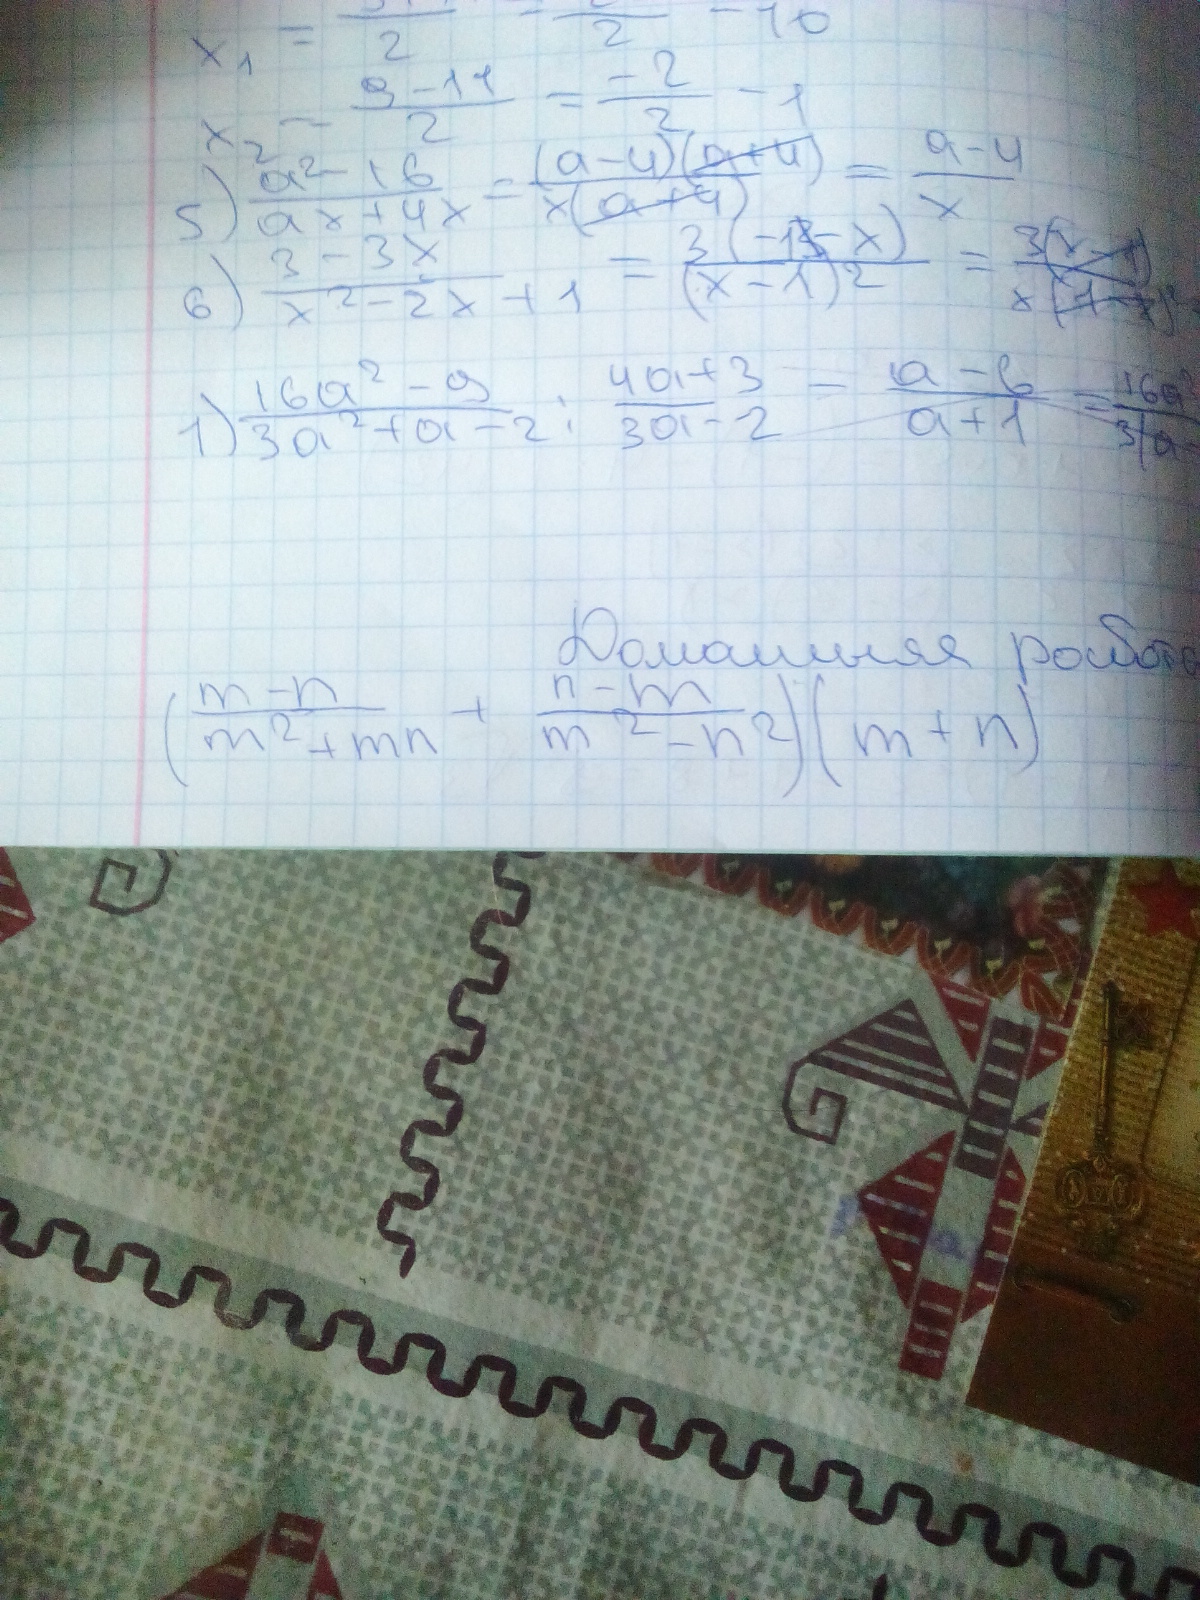 x₁ = /2 = /2 - 10
x₂ = (9-11)/2 = (-2)/2 - 1
5) (a²-16)/(ax+4x) = ((a-4)(a+4))/(x(a+4)) = (a-4)/x
6) (3-3x)/(x²-2x+1) = /(x-1)² =
1) (16a²-9)/(3a²+a-2) : (4a+3)/(3a-2) - (a-6)/(a+1) =
Домашняя работа
((m-n)/(m²+mn) + (n-m)/(m²-n²))(m+n)